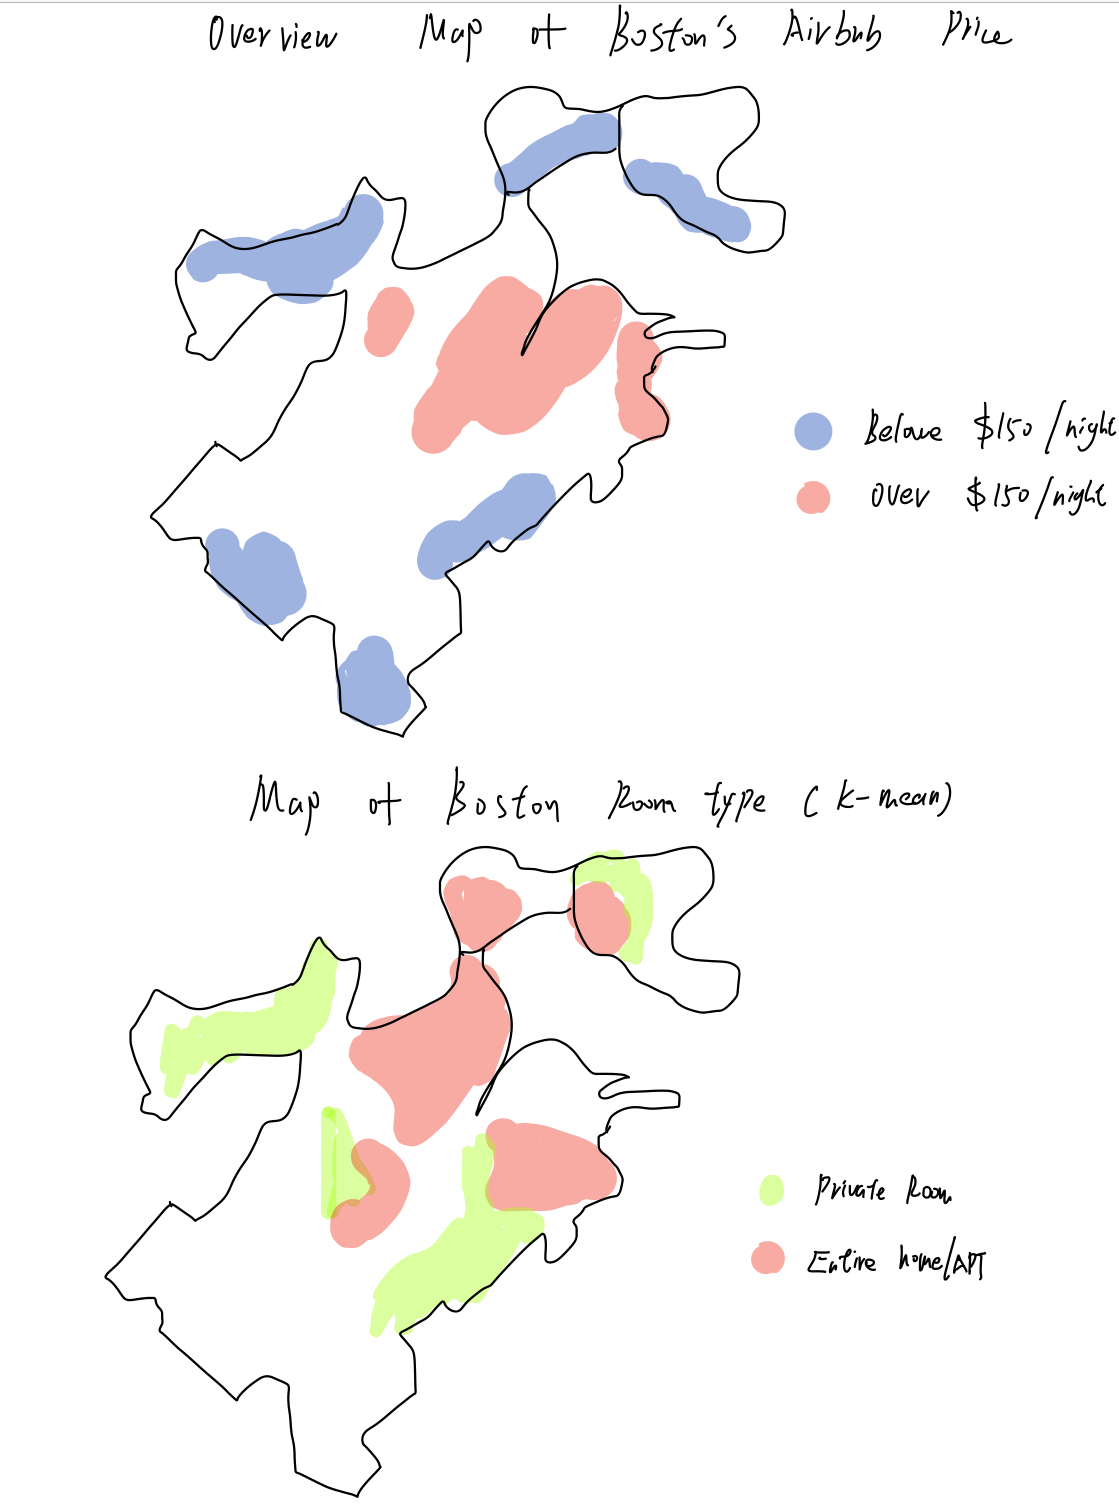 Overview Map of Boston's Airbnb Price
Below $150/night
Over $150/night
Map of Boston Room type (k-mean)
Private Room
Entire home/APT